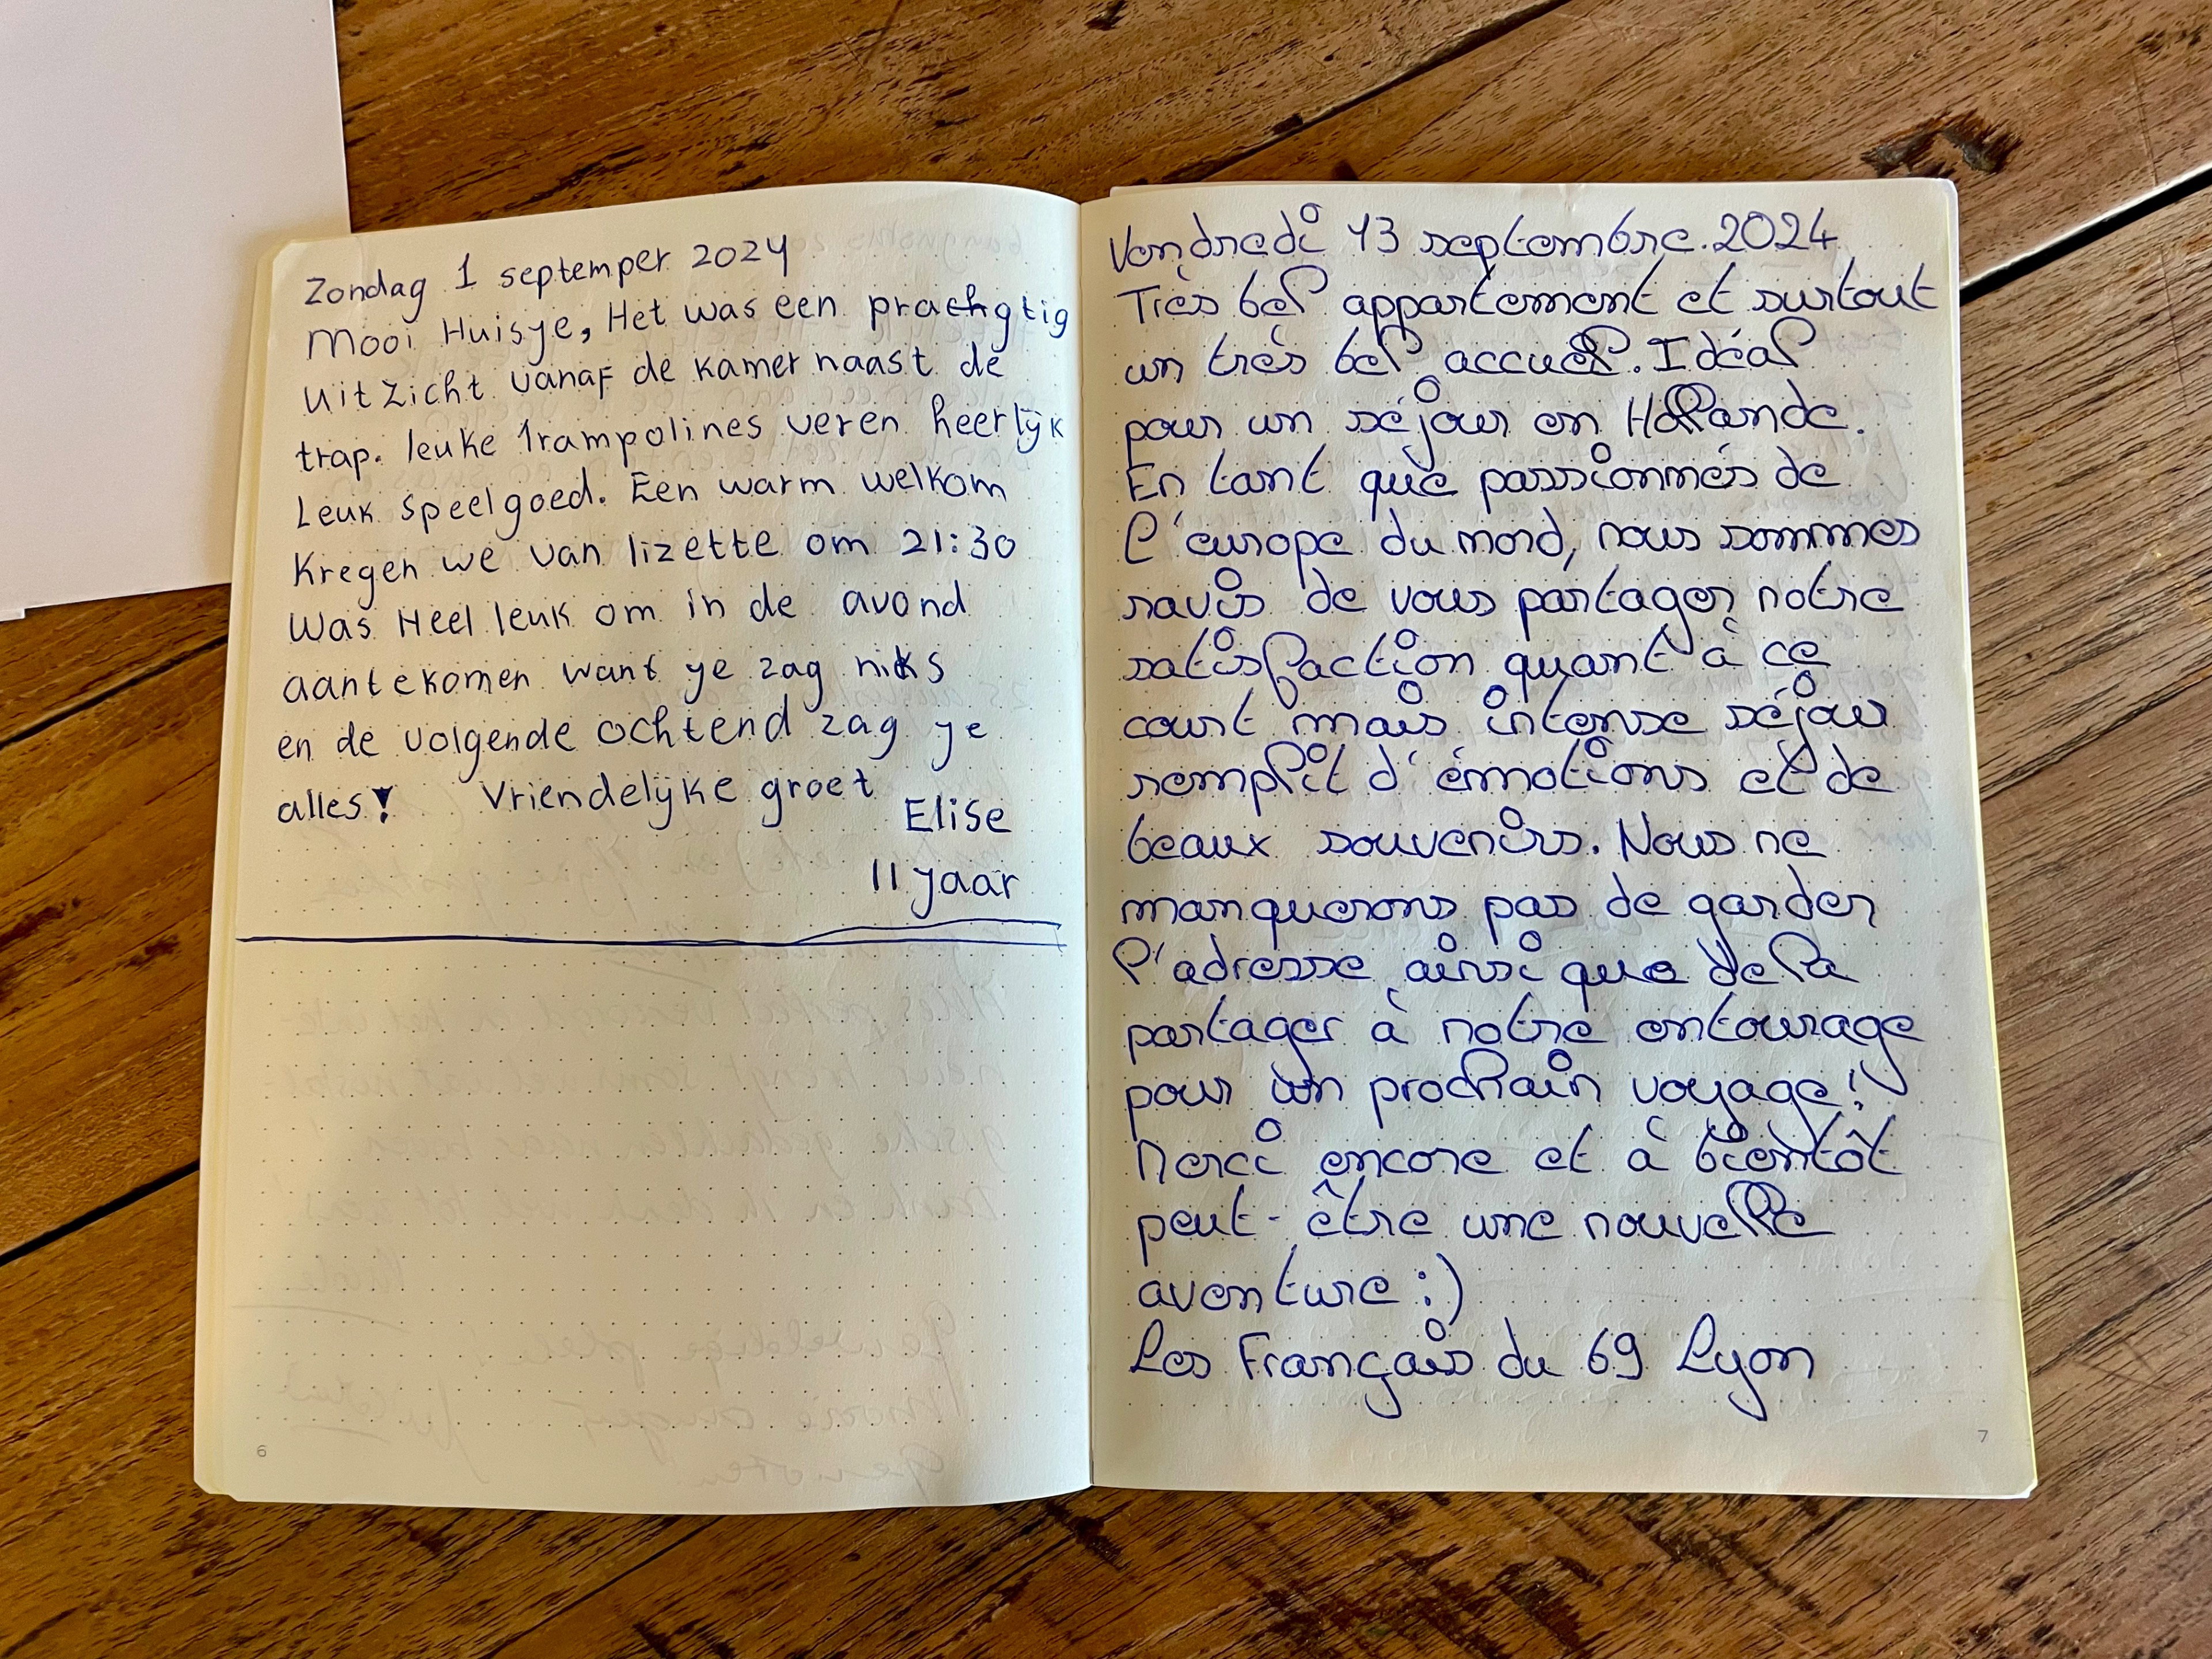 Zondag 1 septemper 2024
Mooi Huisye, Het was een prachgtig
uitzicht vanaf de kamer naast de
trap. leuke Trampolines veren heerlijk
Leuk speelgoed. Een warm welkom
Kregen we van lizette om 21:30
Was Heel leuk om in de avond
aantekomen want ye zag niks
en de volgende ochtend zag ye
alles! Vriendelijke groet
Elise
11 jaar
6
Vendredi 13 septembre 2024
Très bel appartement et surtout
un très bel accueil. Idéal
pour un séjour en Hollande.
En tant que passionnés de
l'europe du nord, nous sommes
ravis de vous partager notre
satisfaction quant à ce
court mais intense séjour
remplit d'émotions et de
beaux souvenirs. Nous ne
manquerons pas de garder
l'adresse ainsi que de la
partager à notre entourage
pour un prochain voyage!
Merci encore et à bientôt
peut-être une nouvelle
aventure :)
Les Français du 69 Lyon
7